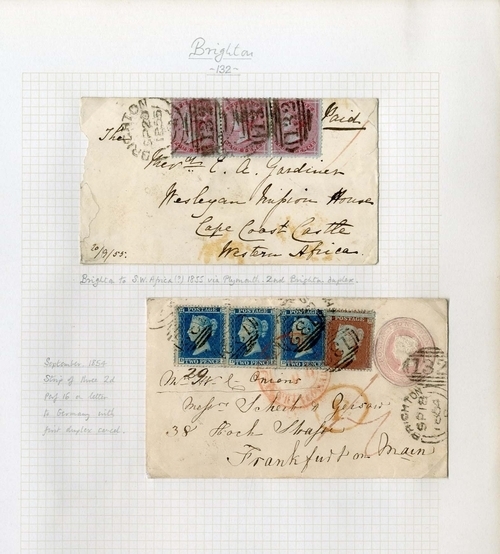 Brighton
-132-
BRIGHTON
SP 20
1855
132
132
132
Paid
The
Revd. C. A. Gardiner
Wesleyan Mission House
Cape Coast Castle
Western Africa
20/9/55.
Brighton to S.W. Africa (?) 1855 via Plymouth. 2nd Brighton duplex.
POSTAGE POSTAGE POSTAGE POSTAGE
TWO PENCE TWO PENCE TWO PENCE
132
BRIGHTON
SP 18
1854
September 1854
Strip of three 2d
Perf 16 on letter
to Germany with
fine duplex cancel.
29
Onions
Messrs
38 Hoch Strasse
Frankfurt on Main